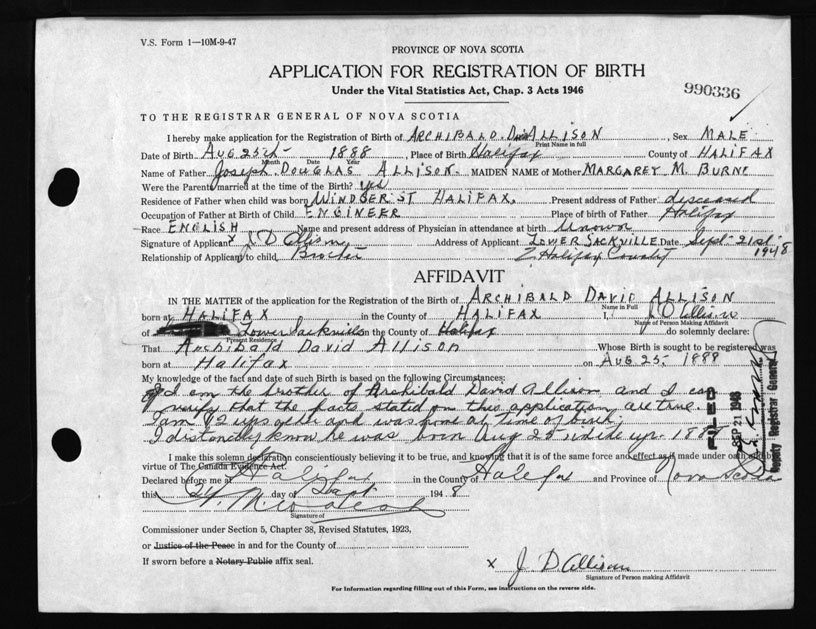 V.S. Form 1—10M-9-47
PROVINCE OF NOVA SCOTIA
APPLICATION FOR REGISTRATION OF BIRTH
990336
Under the Vital Statistics Act, Chap. 3 Acts 1946
TO THE REGISTRAR GENERAL OF NOVA SCOTIA
I hereby make application for the Registration of Birth of ARCHIBALD David ALLISON, Sex MALE
Print Name in full
Date of Birth Aug 25th 1888, Place of Birth Halifax County of HALIFAX
Month Date Year
Name of Father Joseph DOUGLAS ALLISON. MAIDEN NAME of Mother MARGARET M. BURNE
Were the Parents married at the time of the Birth? yes
Residence of Father when child was born WINDSER ST HALIFAX, Present address of Father deseased
Occupation of Father at Birth of Child ENGINEER Place of Birth of Father Halifax
Race ENGLISH Name and present address of Physician in attendance at birth Unown
Signature of Applicant x J D Allison Address of Applicant LOWER SACKVILLE Date Sept 21st 1948
Relationship of Applicant to child, Brother Halifax County
AFFIDAVIT
IN THE MATTER of the application for the Registration of the Birth of ARCHIBALD DAVID ALLISON
Name in Full
born at HALIFAX in the County of HALIFAX I, J D Allison
Name of Person Making Affidavit
of Lower Sackville in the County of Halifax do solemnly declare:
Present Residence
That Archibald David Allison Whose Birth is sought to be registered was
born at Halifax on Aug 25, 1888
My knowledge of the fact and date of such Birth is based on the following Circumstances:
I am the brother of Archibald David Allison and I can
verify that the facts stated on this application are true.
I am 72 yrs old and was home at time of birth,
I distonctly know he was born Aug 25
FILED
SEP 21 1948
Deputy Registrar General
I make this solemn declaration conscientiously believing it to be true, and knowing that it is of the same force and effect as if made under oath and by
virtue of The Canada Evidence Act.
Declared before me at Halifax in the County of Halifax and Province of Nova Scotia
this 21 day of Sept 1948
Signature of
Commissioner under Section 5, Chapter 38, Revised Statutes, 1923,
or Justice of the Peace in and for the County of
If sworn before a Notary Public affix seal.
x J. D Allison
Signature of Person making Affidavit
For Information regarding filling out of this Form, see instructions on the reverse side.